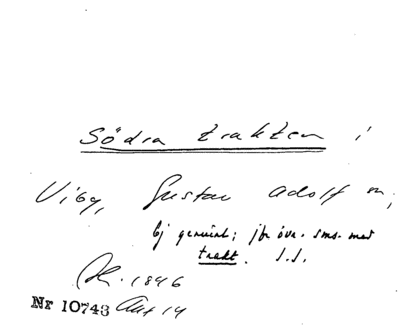 Södra trakten i
Viby, Gustav Adolf m,
Ej genuint; jfr övr. sms. med
trakt. S.S.
Ak. 1846
Nr 10743 Akt 14